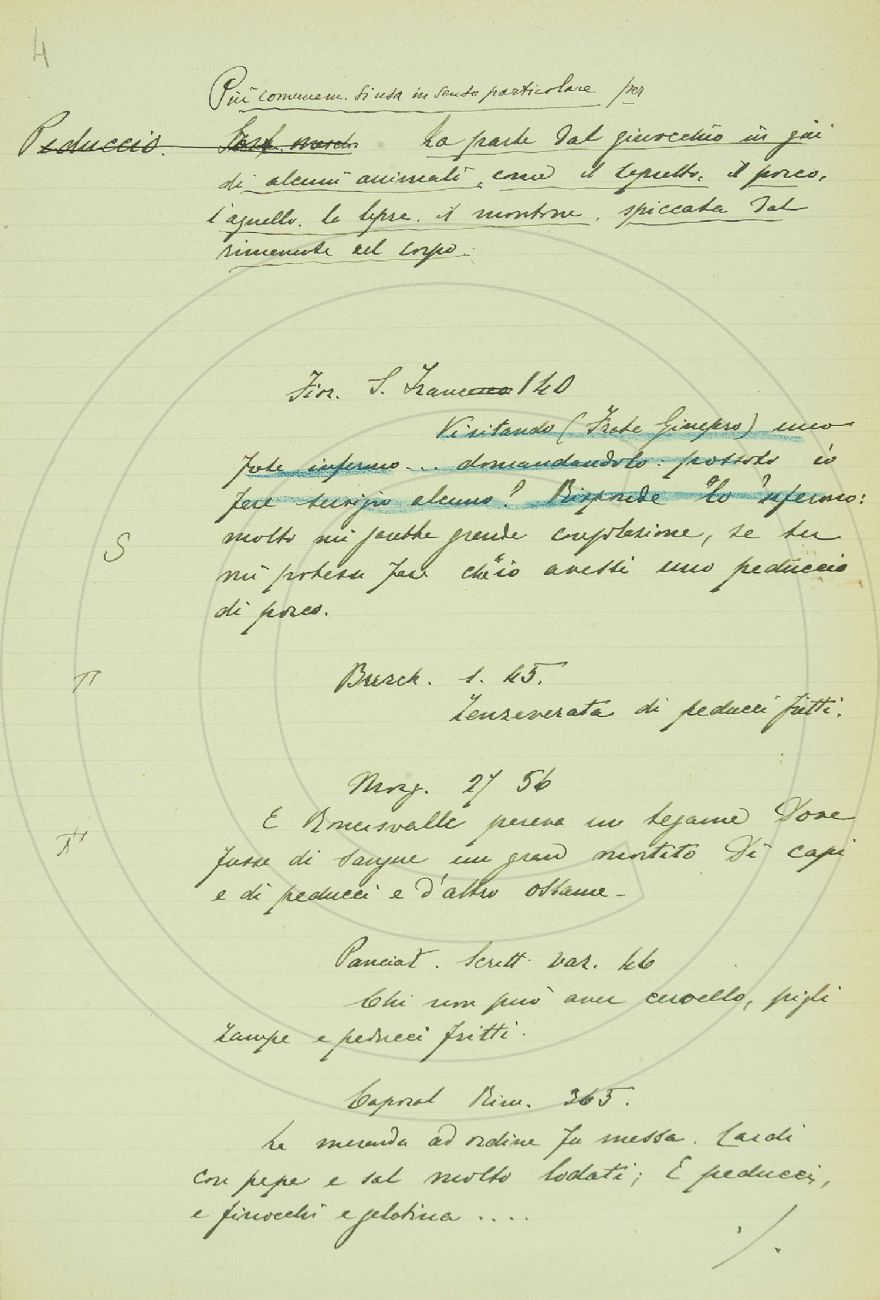 4
Più comunem. si usa in senso particolare per
Peduccio. Sost. masch. La parte dal ginocchio in giù
di alcuni animali, come il capretto, il porco,
l'agnello, la lepre, il montone, spiccata dal
rimanente del corpo.
Fior. S. Franc 140
Visitando (Frate Ginepro) uno
frate infermo... domandandolo: possoti io
fare servigio alcuno? Risponde lo 'nfermo:
molto mi sarebbe grande consolazione, se tu
S
mi potessi fare ch'io avessi uno peduccio
di porco.
Burch. 1. 45.
Zenzeverata di peducci fritti.
Morg. 27 56
E Roncisvalle pareva un tegame Dove
fusse di sangue un gran mortito Di capi
e di peducci e d'altro ossame_
Panciat. Scritt. var. 46
Chi non può aver cervello, pigli
zampe e peducci fritti.
Caporal Rim. 365.
La merenda ad ordine fu messa. Cardi
con pepe e sal molto lodati; E peducci,
e finocchi e gelatina ....
./.